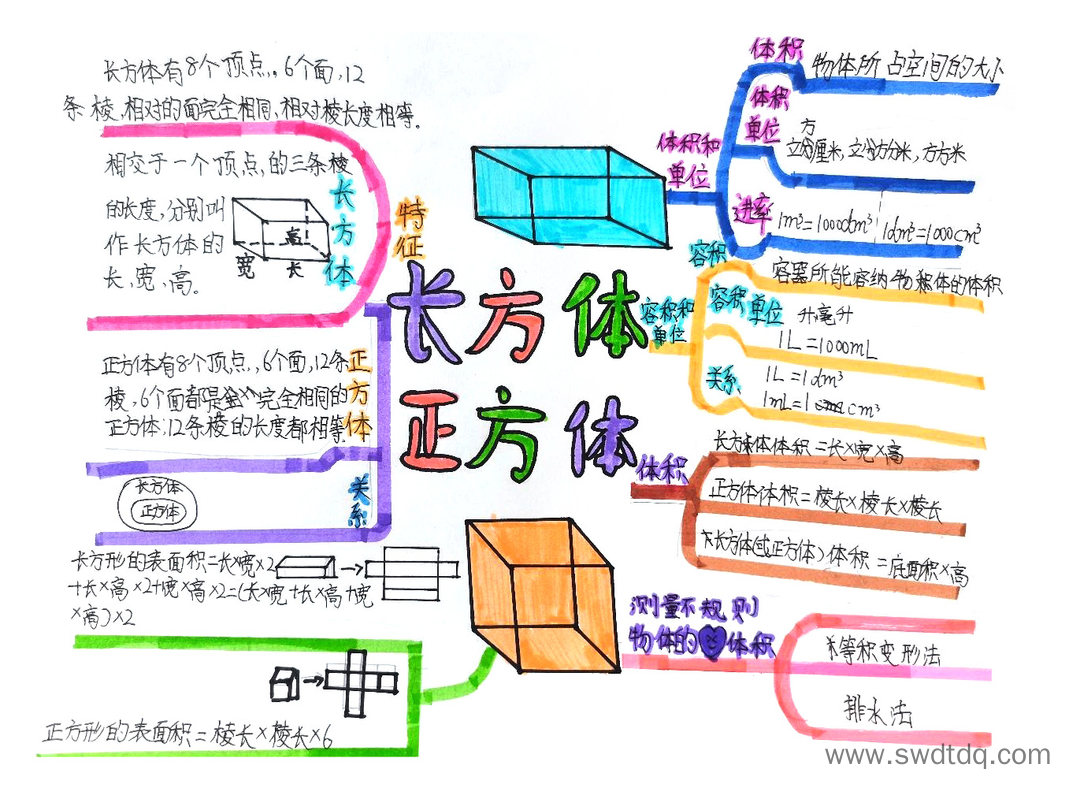 长方体有8个顶点,6个面,12
条棱,相对的面完全相同,相对棱长度相等.
相交于一个顶点,的三条棱
的长度,分别叫
作长方体的
长,宽,高.
高
宽
长
长方体
特征
正方体有8个顶点,6个面,12条
棱,6个面都是完全相同的
正方体;12条棱的长度都相等.
正方体
长方体
正方体
关系
长方形的表面积=长×宽×2
+长×高×2+宽×高×2=(长×宽+长×高+宽
×高)×2
正方形的表面积=棱长×棱长×6
长方体
正方体
体积和
单位
体积
物体所占空间的大小
体积
单位
方
立方厘米,立方分米,方方米
进率
1m³=1000dm³
1dm³=1000cm³
容积和
单位
容积
容器所能容纳物体的体积
容积
单位
升毫升
1L=1000mL
关系
1L=1dm³
1mL=1cm³
体积
长方体体积=长×宽×高
正方体体积=棱长×棱长×棱长
长方体(或正方体)体积=底面积×高
测量不规则
物体的体积
等积变形法
排水法
www.swdtdq.com